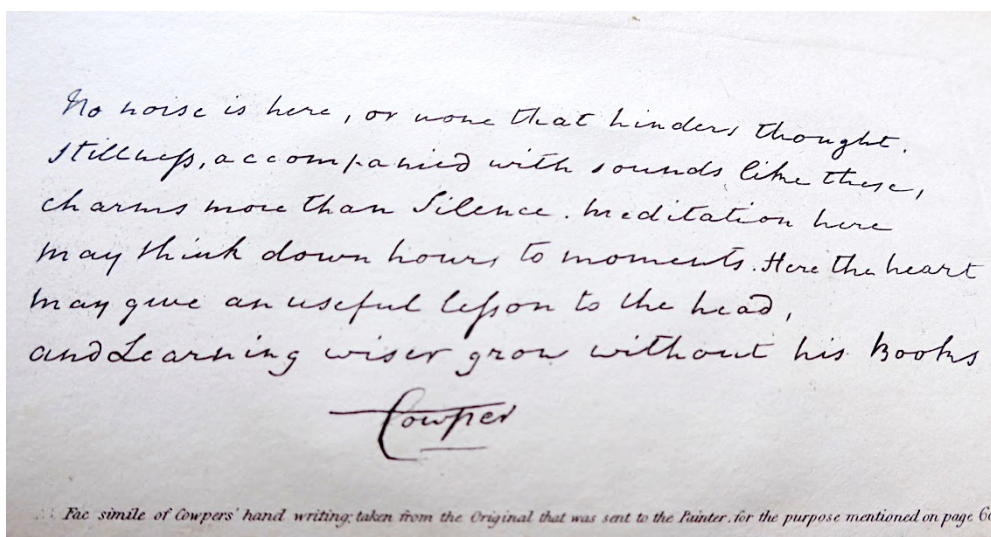 No noise is here, or none that hinders thought.
Stillneſs, accompanied with sounds like these,
charms more than Silence. Meditation here
may think down hours to moments. Here the heart
may give an useful leſson to the head,
and Learning wiser grow without his Books
Cowper
Fac simile of Cowpers' hand writing; taken from the Original that was sent to the Painter, for the purpose mentioned on page